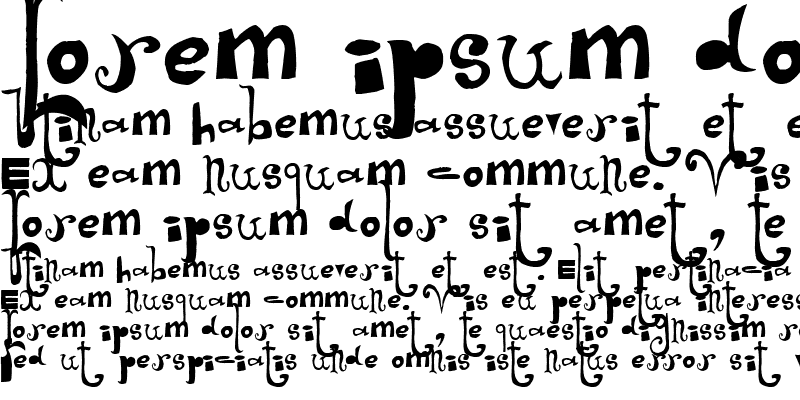 Lorem ipsum do
Utinam habemus assueverit et e
Ex eam nusquam commune. Vis
Lorem ipsum dolor sit amet, te
Utinam habemus assueverit et est. Elit pertinacia
Ex eam nusquam commune. Vis eu perpetua interess
Lorem ipsum dolor sit amet, te quaestio dignissim re
Sed ut perspiciatis unde omnis iste natus error sit v